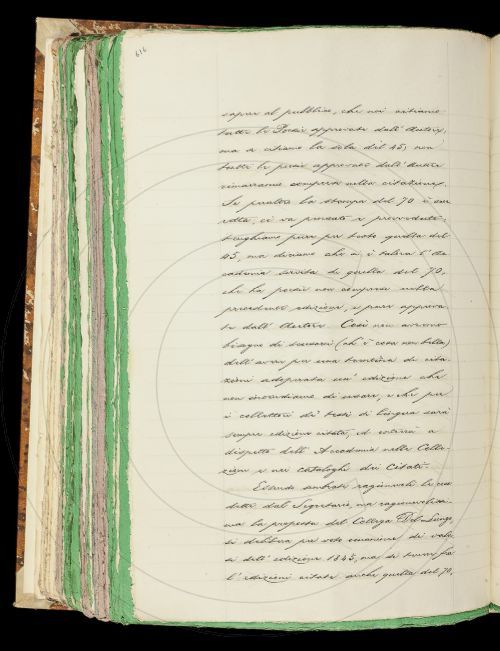 616
saper al pubblico, che noi citiamo
tutte le Poesie approvate dall'Autore,
ma se citiamo la sola del 45, non
tutte le poesie approvate dall'Autore
rimarranno comprese nella citazione.
Se peraltro la stampa del 70 è
ci va pensato e provveduto,
pure per testo quella del
45, ma diciamo che si è valsa l'Ac
cademia di quella del 70,
che ha poesie non comprese nella
precedente edizione, e pure approva
te dall'Autore. Così non avremo
bisogno di scusarci (ch'è cosa non bella)
dell'aver per una di cita
zioni adoperata un'edizione che
non di usare, e che per
i collettori di testi di lingua sarà
sempre edizione citata, ed entrerà a
dispetto dell'Accademia nelle Colle
zioni e nei Cataloghi dei Citati.
Essendo sembrate ragionevoli le cose
dette dal Segretario, ma ragionevolissi
ma la proposta del Collega Del Lungo,
si delibera per voto unanime di valer
si dell'edizione 1845, ma di tra
l'edizioni citate anche quella del 70,